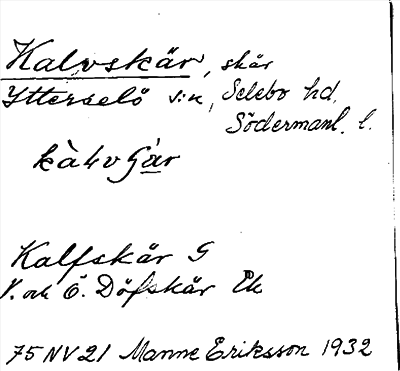 Kalvskär, skär
Ytterselö s:n, Selebo hd,
Södermanl. l.
kàlvʃàr
Kalfskär G
V. och Ö. Döfskär Ek
75 NV 21 Manne Eriksson 1932